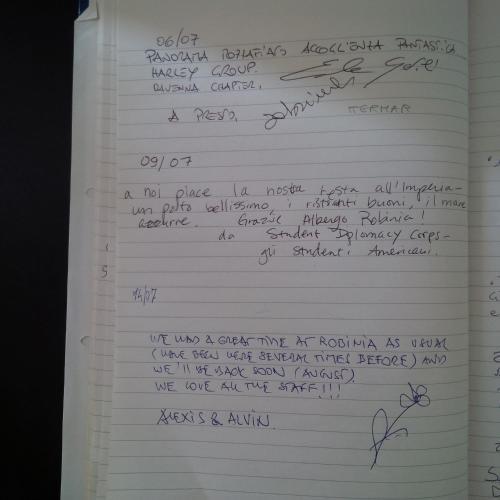 06/07
PANORAMA ACCOGLIENZA FANTASTICA
HARLEY GROUP.
RAVENNA CHAPTER.
A PRESTO.
09/07
a noi piace la nostra festa all'Imperia-
un posto bellissimo, i ristoranti buoni, il mare
azzurre. Grazie Albergo Robinia!
da Student Diplomacy Corps-
gli studenti Americani.
14/07
WE HAD A GREAT TIME AT ROBINIA AS USUAL
(HAVE BEEN HERE SEVERAL TIMES BEFORE) AND
WE'LL BE BACK SOON (AUGUST)
WE LOVE ALL THE STAFF!!!
ALEXIS & ALVIN.